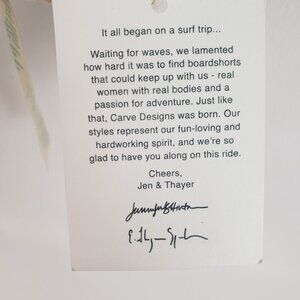 It all began on a surf trip...
Waiting for waves, we lamented
how hard it was to find boardshorts
that could keep up with us - real
women with real bodies and a
passion for adventure. Just like
that, Carve Designs was born. Our
styles represent our fun-loving and
hardworking spirit, and we're so
glad to have you along on this ride.
Cheers,
Jen & Thayer